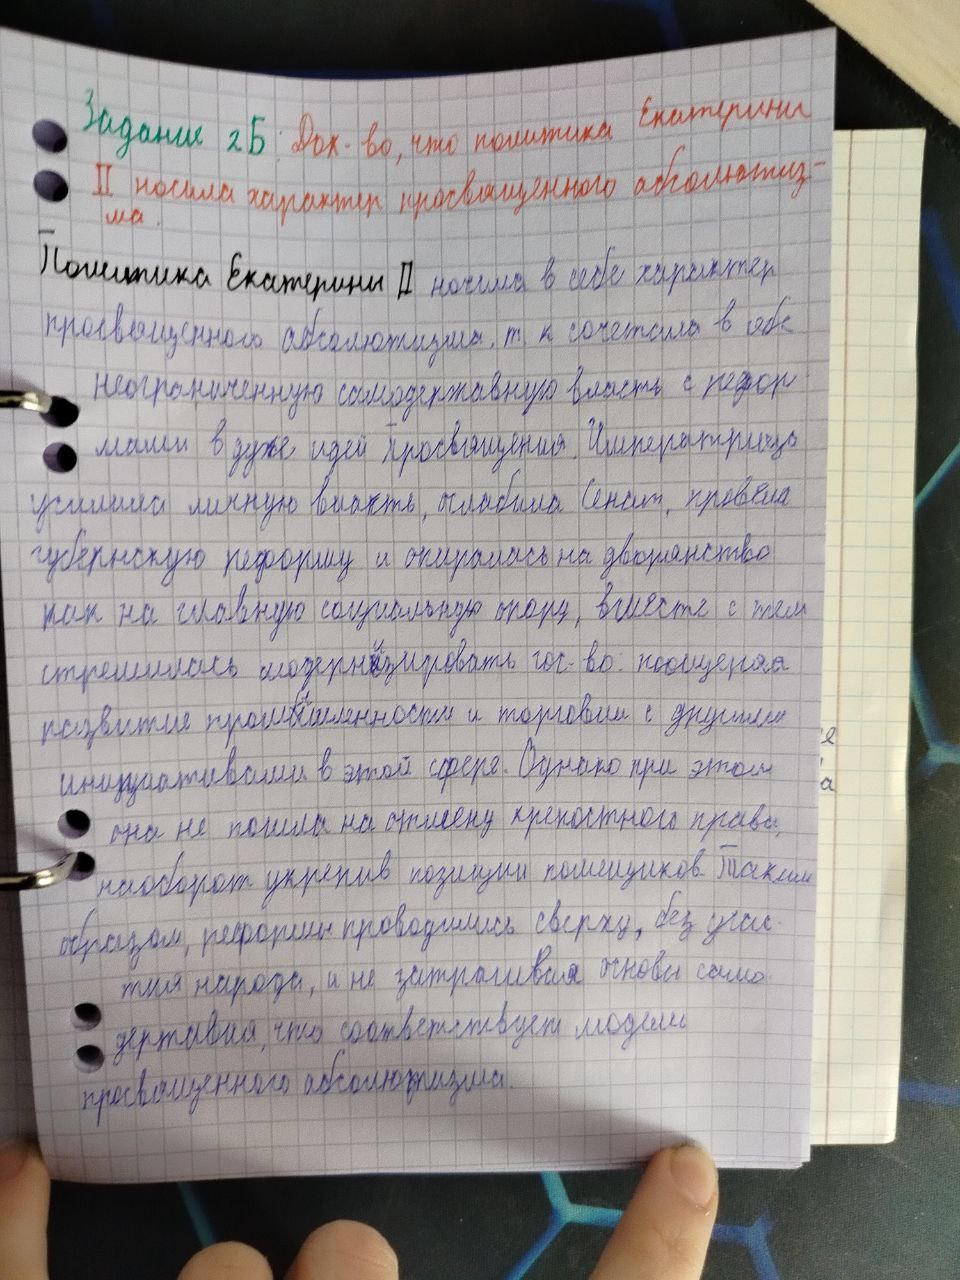 Задание 2Б: Док-во, что политика Екатерины
II носила характер просвященного абсолютиз-
ма.
Политика Екатерины II носила в себе характер
просвященного абсолютизма, т. к сочетала в себе
неограниченную самодержавную власть с рефор-
мами в духе идей Просвящения. Императрица
усилила личную власть, ослабила Сенат, провела
губернскую реформу и опиралась на дворянство
как на главную социальную опору, вместе с тем
стремилась модернизировать гос-во: поощряя
развитие промышленности и торговли с другими
инициативами в этой сфере. Однако при этом
она не пошла на отмену крепостного права,
наоборот укрепив позиции помещиков. Таким
образом, реформы проводились сверху, без учас-
тия народа, и не затрагивая основы само-
державия, что соответствует модели
просвященного абсолютизма.
я
а